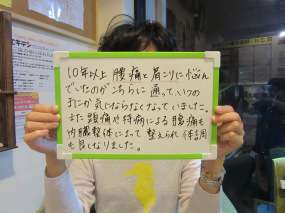 10年以上 腰痛と肩こりに悩ん
でいたのがこちらに通って、いつの
まにか気にならなくなっていました。
また頭痛や持病による腹痛も
内臓整体によって整えられ体調
も良くなりました。
エキテン